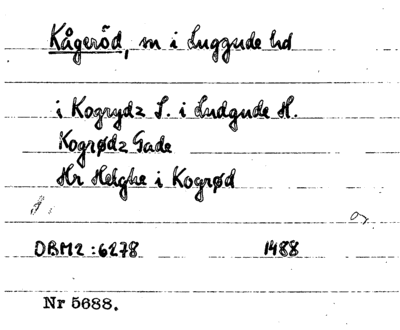 Kågeröd, sn i Luggude hd
i Kogrydz S. i Ludgude H.
Kogrødz Gade
Hr Helghe i Kogrød
DBM2:6278 1488
Nr 5688.